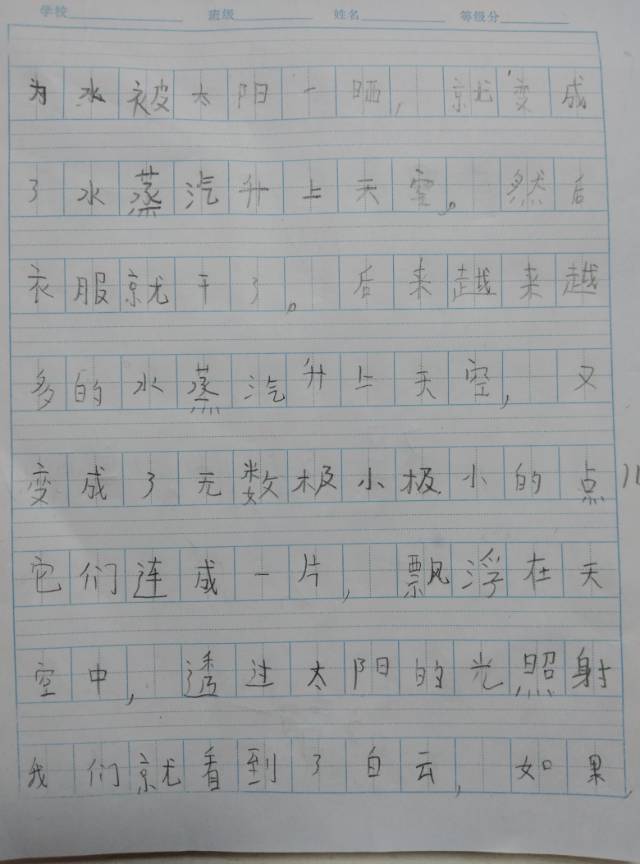 学校 班级 姓名 等级分
为水被太阳一晒，就变成
了水蒸汽升上天空。然后
衣服就干了。后来越来越
多的水蒸汽升上天空，又
变成了无数极小极小的点儿
它们连成一片，飘浮在天
空中，透过太阳的光照射
我们就看到了白云，如果